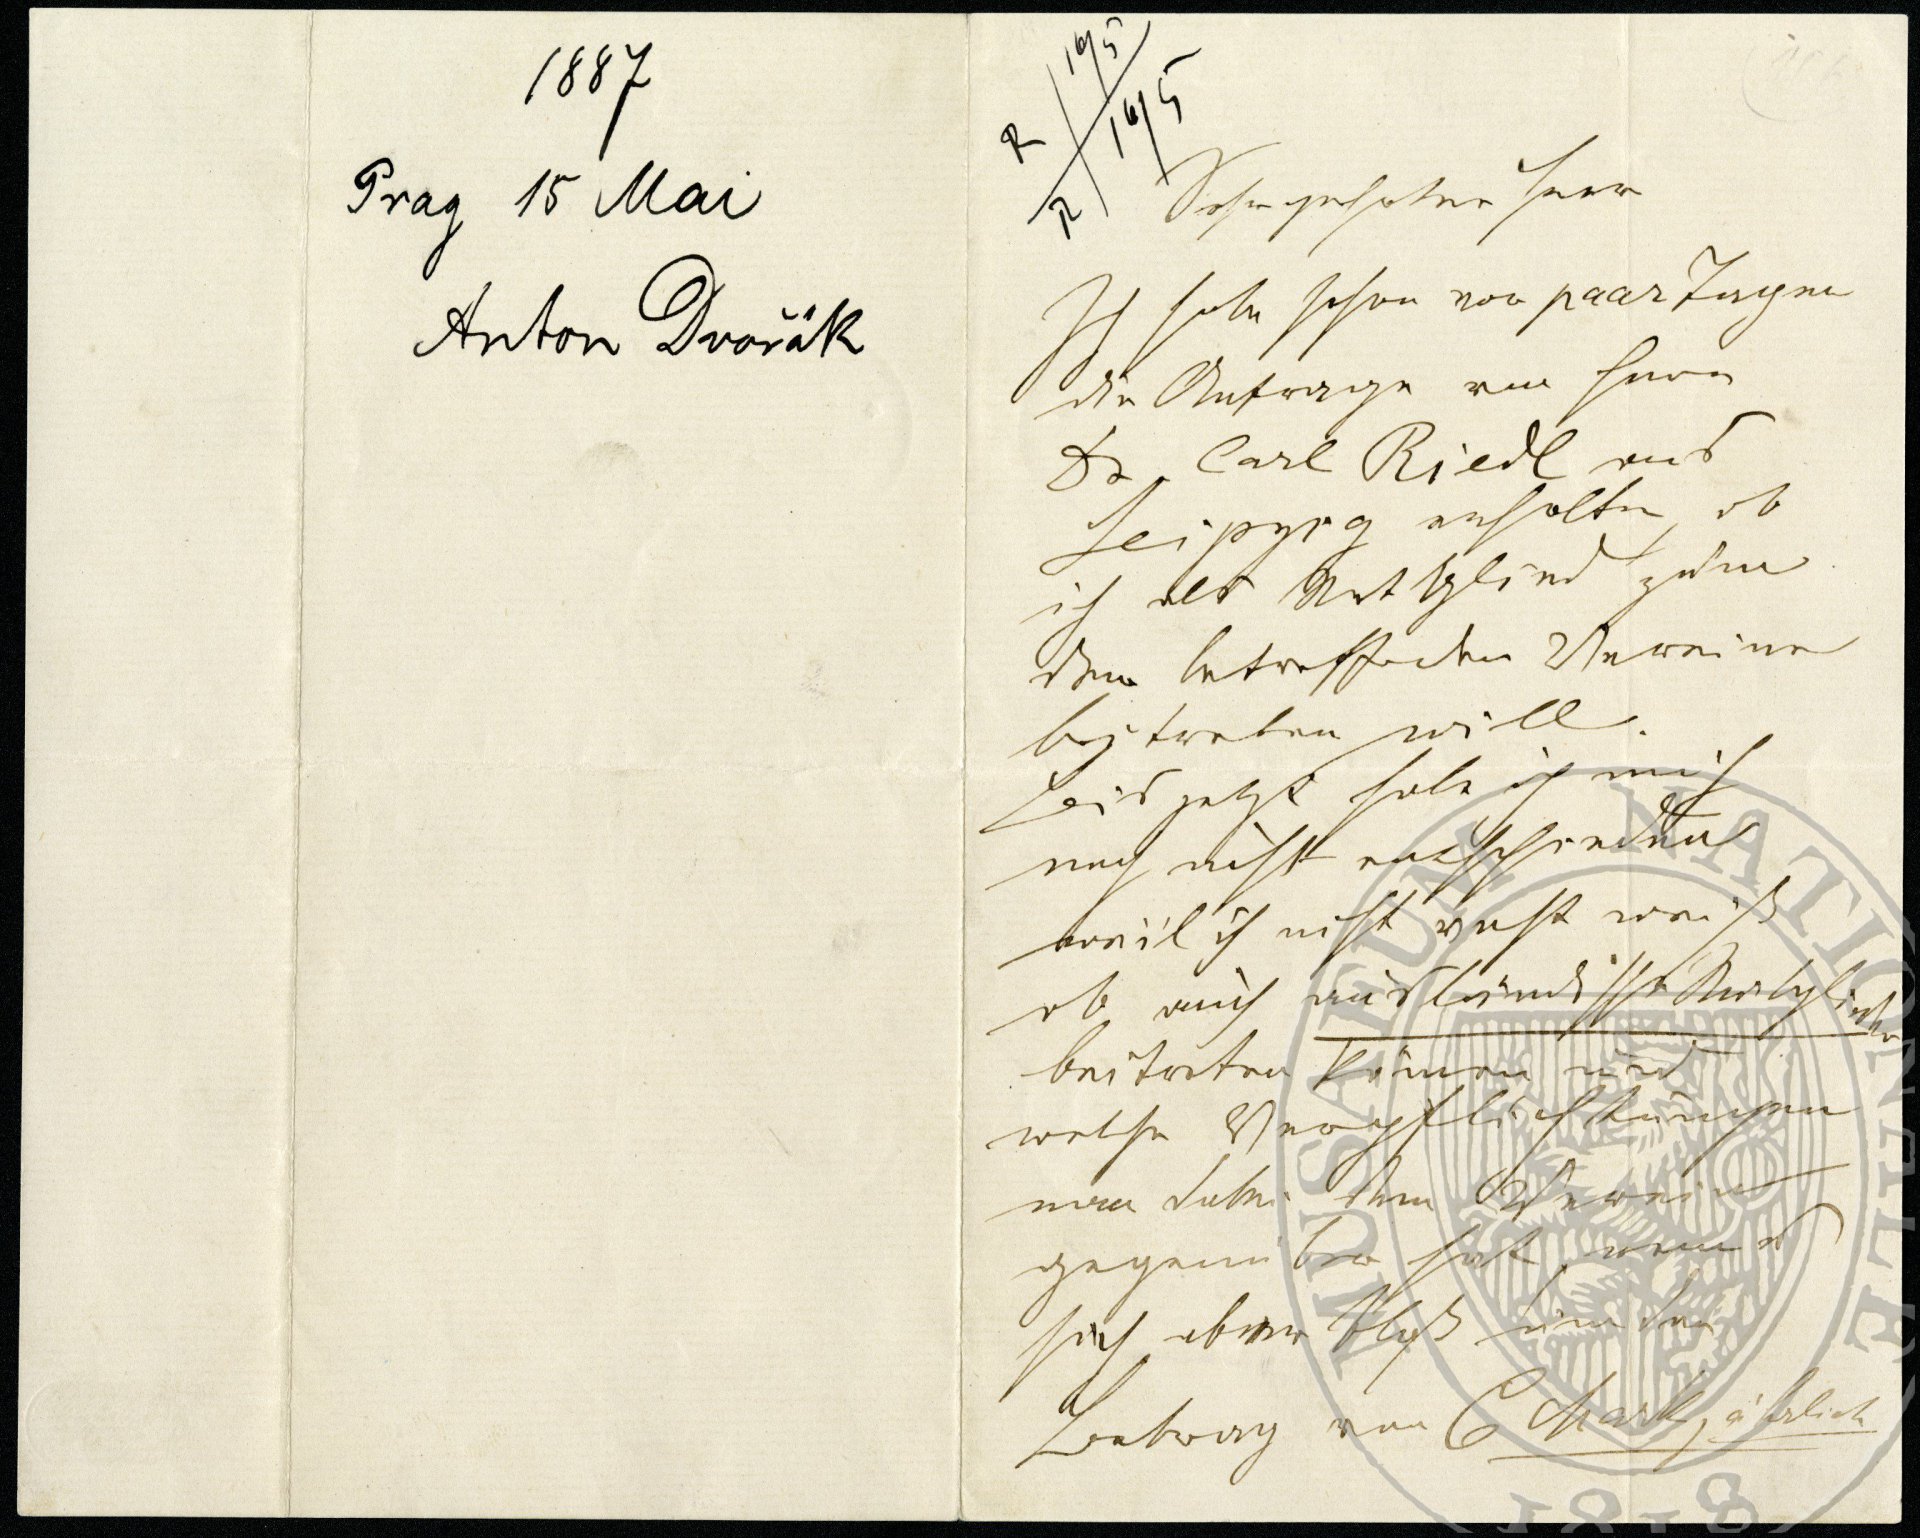 1887
Prag 15 Mai
Anton Dvořák
R 16/5
R 16/5
Sehr geehrter Herr
Ich habe schon vor paar Tagen
die Anfrage von Herrn
Dr. Carl Riedl aus
Leipzig erhalten, ob
ich als Mitglied zum
dem betreffenden Vereine
beitreten will.
Bis jetzt habe ich mich
noch nicht entschieden
weil ich nicht recht weiß
ob auch ausländische Mitglieder
beitreten können und
welche Verpflichtungen
man dabei dem Verein
gegenüber hat, wenn es
sich aber bloß um den
Betrag von 6 Mark jährlich
MUSAEUM NATIONALE
1818